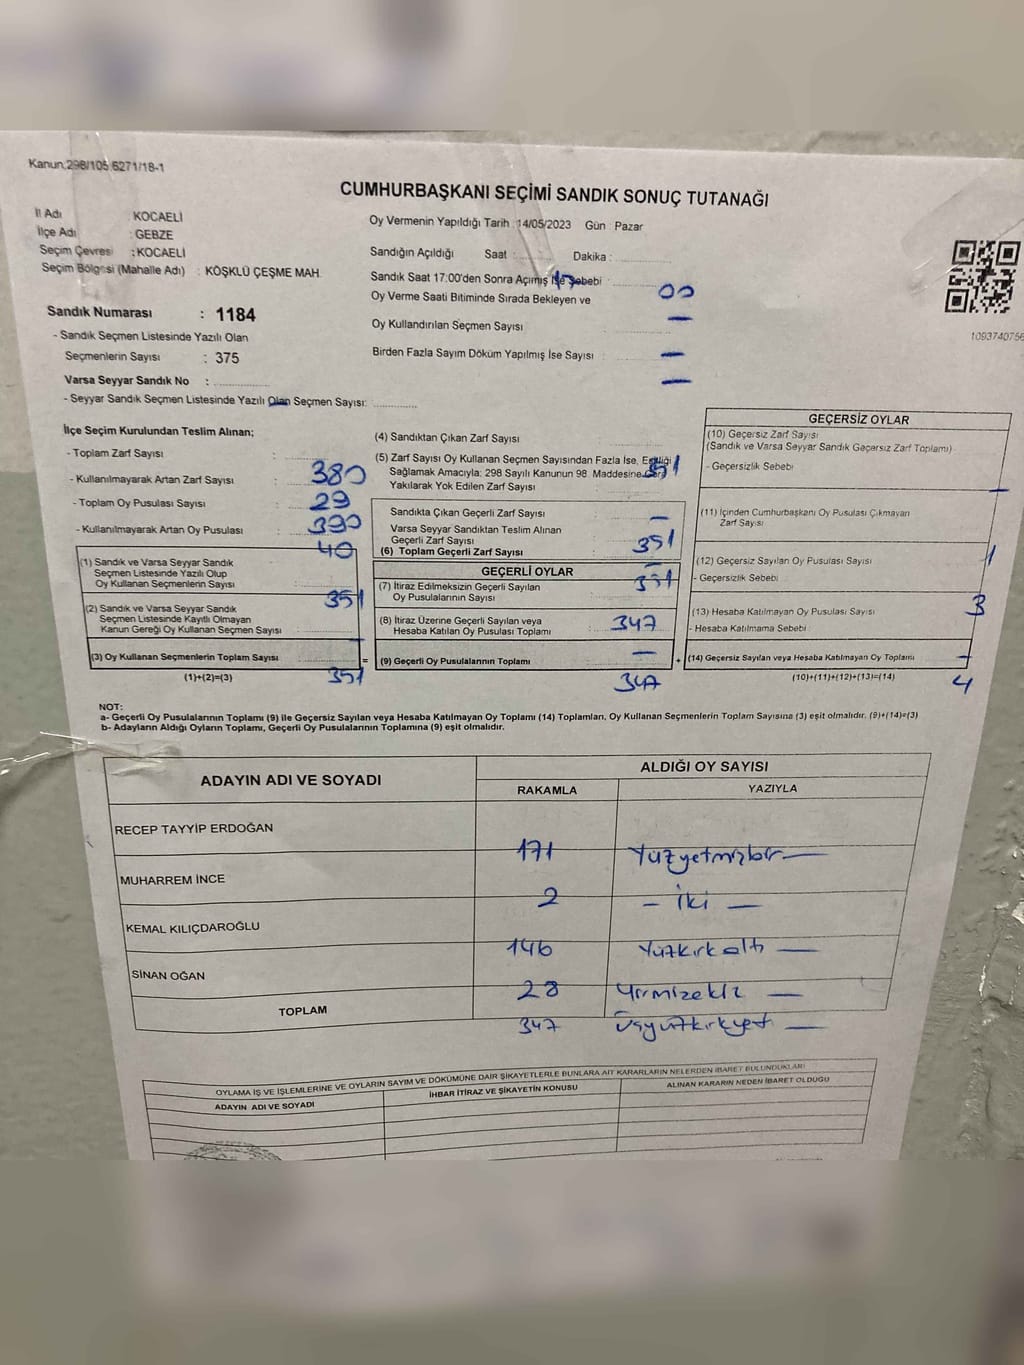 Kanun:298/105 6271/18-1
CUMHURBAŞKANI SEÇİMİ SANDIK SONUÇ TUTANAĞI
İl Adı : KOCAELİ
İlçe Adı : GEBZE
Seçim Çevresi : KOCAELİ
Seçim Bölgesi (Mahalle Adı) : KÖŞKLÜ ÇEŞME MAH.
Sandık Numarası : 1184
- Sandık Seçmen Listesinde Yazılı Olan
Seçmenlerin Sayısı : 375
Varsa Seyyar Sandık No :
- Seyyar Sandık Seçmen Listesinde Yazılı Olan Seçmen Sayısı: —
Oy Vermenin Yapıldığı Tarih : 14/05/2023 Gün : Pazar
Sandığın Açıldığı Saat : Dakika :
17 00
Sandık Saat 17:00'den Sonra Açımış İse Sebebi :
Oy Verme Saati Bitiminde Sırada Bekleyen ve
Oy Kullandırılan Seçmen Sayısı : —
Birden Fazla Sayım Döküm Yapılmış İse Sayısı : —
—
1093740756
İlçe Seçim Kurulundan Teslim Alınan;
- Toplam Zarf Sayısı : 380
- Kullanılmayarak Artan Zarf Sayısı : 29
- Toplam Oy Pusulası Sayısı : 390
- Kullanılmayarak Artan Oy Pusulası : 40
(1) Sandık ve Varsa Seyyar Sandık
Seçmen Listesinde Yazılı Olup
Oy Kullanan Seçmenlerin Sayısı : 351
(2) Sandık ve Varsa Seyyar Sandık
Seçmen Listesinde Kayıtlı Olmayan
Kanun Gereği Oy Kullanan Seçmen Sayısı : —
(3) Oy Kullanan Seçmenlerin Toplam Sayısı 351
(1)+(2)=(3)
(4) Sandıktan Çıkan Zarf Sayısı : 351
(5) Zarf Sayısı Oy Kullanan Seçmen Sayısından Fazla İse, Eşitliği
Sağlamak Amacıyla: 298 Sayılı Kanunun 98. Maddesine Göre
Yakılarak Yok Edilen Zarf Sayısı : —
Sandıkta Çıkan Geçerli Zarf Sayısı 351
Varsa Seyyar Sandıktan Teslim Alınan
Geçerli Zarf Sayısı : —
(6) Toplam Geçerli Zarf Sayısı : 351
GEÇERLİ OYLAR
(7) İtiraz Edilmeksizin Geçerli Sayılan
Oy Pusulalarının Sayısı : 347
(8) İtiraz Üzerine Geçerli Sayılan veya
Hesaba Katılan Oy Pusulası Toplamı : —
= (9) Geçerli Oy Pusulalarının Toplamı : 347
GEÇERSİZ OYLAR
(10) Geçersiz Zarf Sayısı
(Sandık ve Varsa Seyyar Sandık Geçersiz Zarf Toplamı)
- Geçersizlik Sebebi —
(11) İçinden Cumhurbaşkanı Oy Pusulası Çıkmayan
Zarf Sayısı 1
(12) Geçersiz Sayılan Oy Pusulası Sayısı
- Geçersizlik Sebebi : 3
(13) Hesaba Katılmayan Oy Pusulası Sayısı
- Hesaba Katılmama Sebebi : —
+ (14) Geçersiz Sayılan veya Hesaba Katılmayan Oy Toplamı 4
(10)+(11)+(12)+(13)=(14)
NOT:
a- Geçerli Oy Pusulalarının Toplamı (9) ile Geçersiz Sayılan veya Hesaba Katılmayan Oy Toplamı (14) Toplamları, Oy Kullanan Seçmenlerin Toplam Sayısına (3) eşit olmalıdır. (9)+(14)=(3)
b- Adayların Aldığı Oyların Toplamı, Geçerli Oy Pusulalarının Toplamına (9) eşit olmalıdır.
ADAYIN ADI VE SOYADI ALDIĞI OY SAYISI
RAKAMLA YAZIYLA
RECEP TAYYİP ERDOĞAN 171 Yüzyetmişbir —
MUHARREM İNCE 2 — iki —
KEMAL KILIÇDAROĞLU 146 Yüzkırkaltı —
SİNAN OĞAN 28 Yirmisekiz —
TOPLAM 347 Üçyüzkırkyedi —
OYLAMA İŞ VE İŞLEMLERİNE VE OYLARIN SAYIM VE DÖKÜMÜNE DAİR ŞİKAYETLERLE BUNLARA AİT KARARLARIN NELERDEN İBARET BULUNDUKLARI
ADAYIN ADI VE SOYADI İHBAR İTİRAZ VE ŞİKAYETİN KONUSU ALINAN KARARIN NEDEN İBARET OLDUĞU